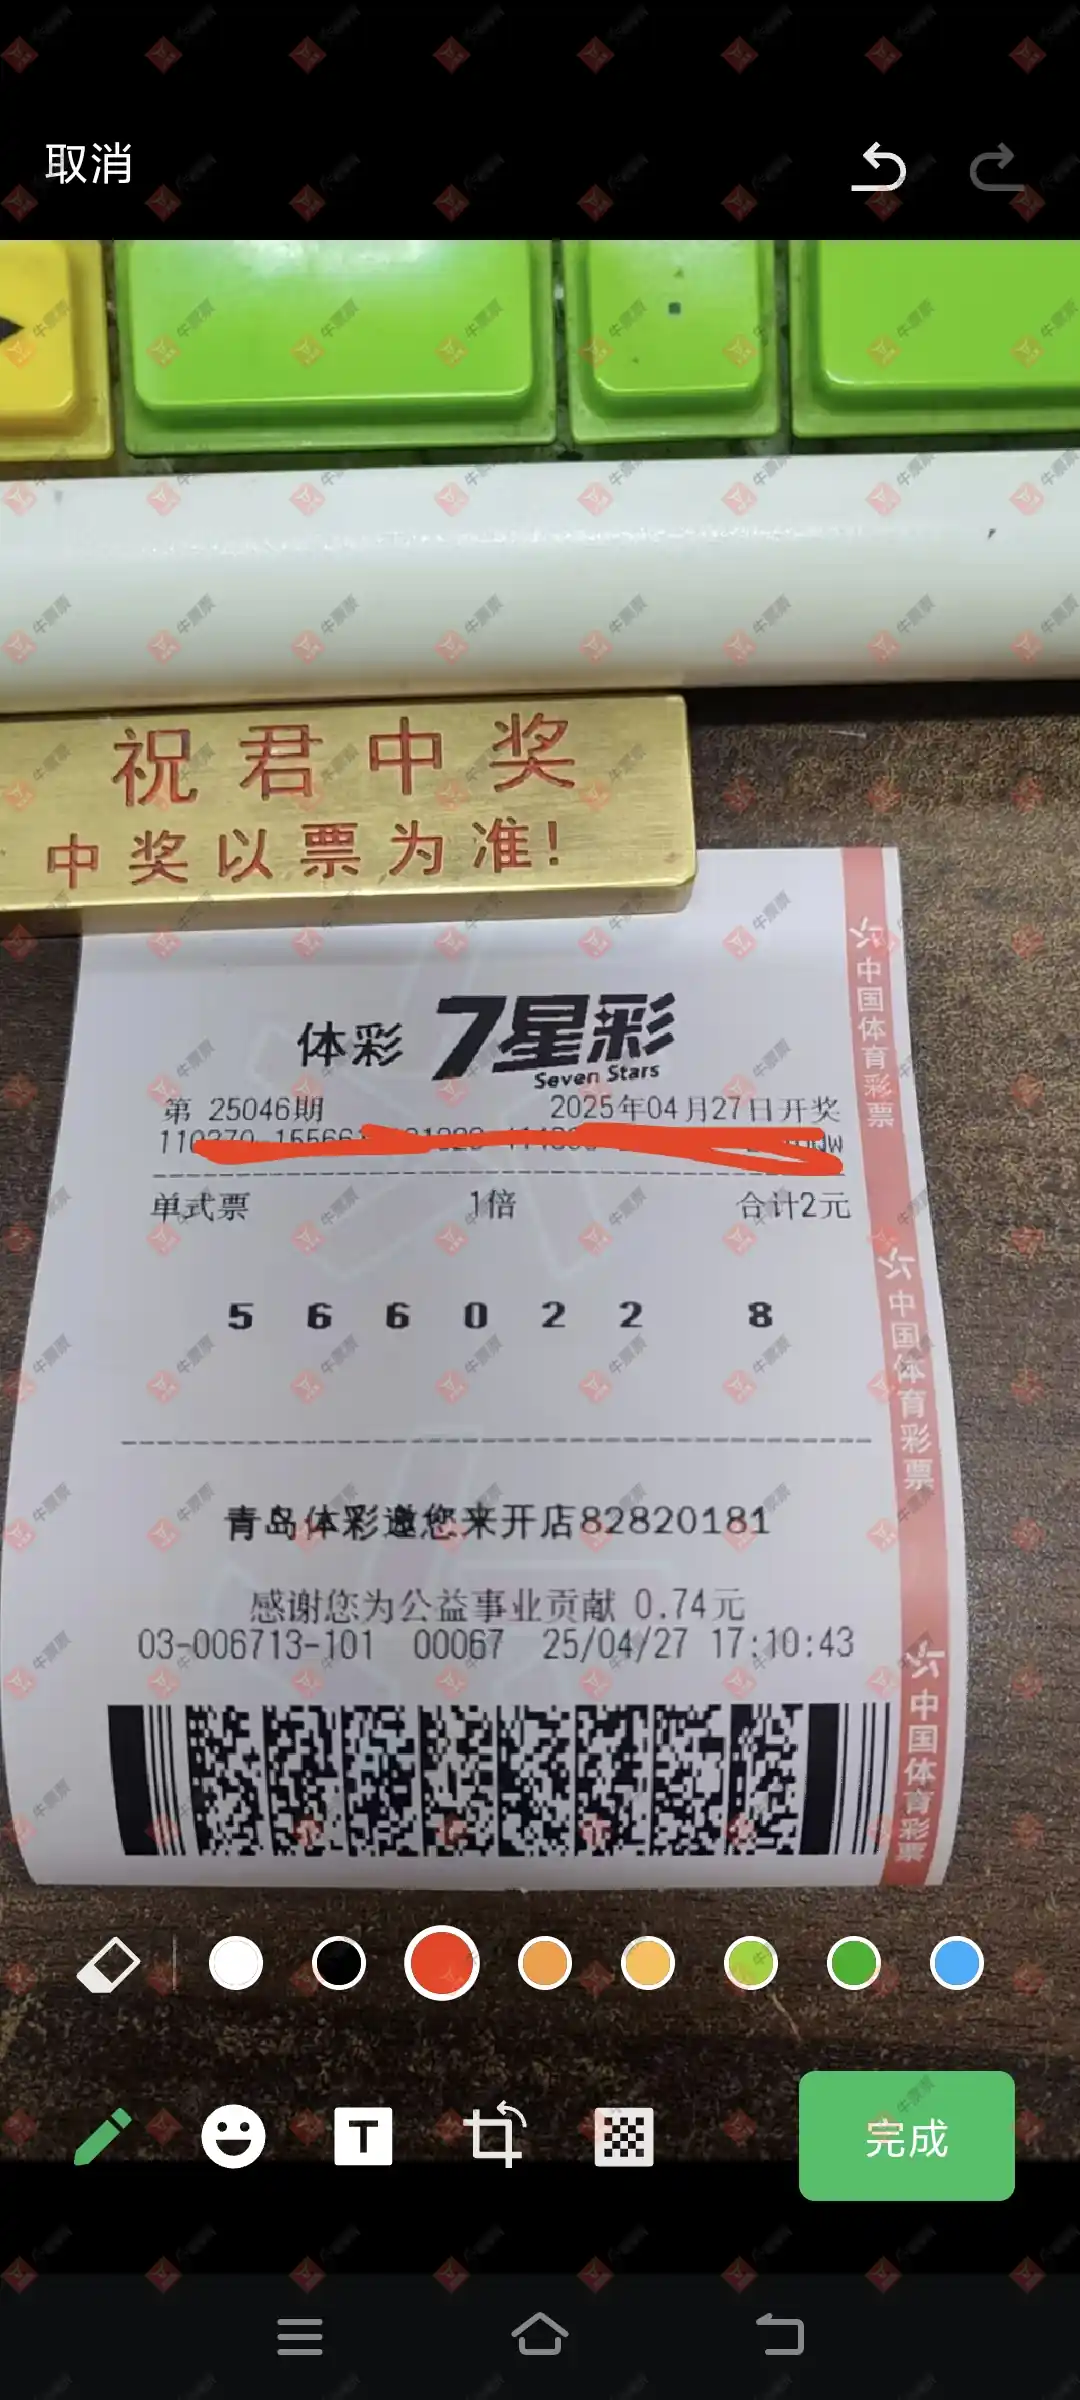 取消
祝君中奖
中奖以票为准!
体彩 7星彩
Seven Stars
第 25046期 2025年04月27日开奖
单式票 1倍 合计2元
5 6 6 0 2 2 8
青岛体彩邀您来开店82820181
感谢您为公益事业贡献 0.74元
03-006713-101 00067 25/04/27 17:10:43
中国体育彩票
中国体育彩票
中国体育彩票
T
完成
牛票票